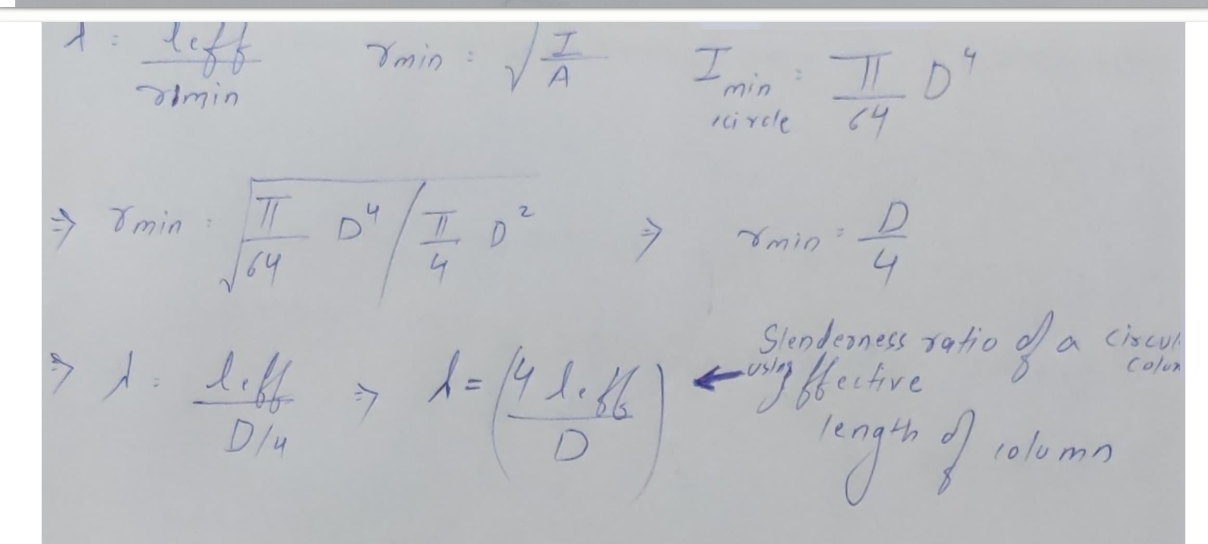 λ = leff / rmin    rmin = √(I/A)    Imin circle = π/64 D⁴
⇒ rmin = √(π/64 D⁴ / π/4 D²)    ⇒ rmin = D/4
⇒ λ = leff / D/4    ⇒ λ = (4 leff / D)    ← Slenderness ratio of a
using effective
length of column